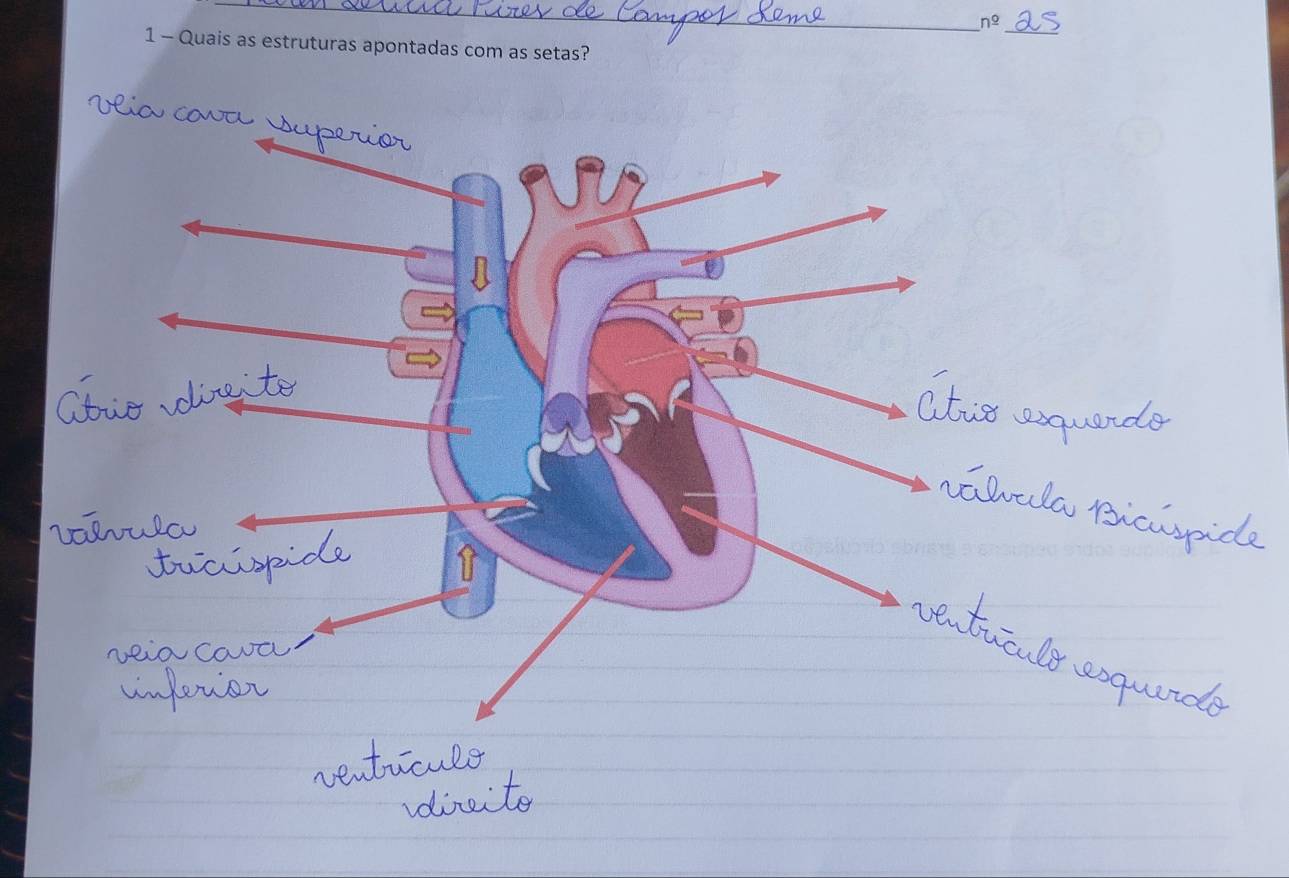 Pires de Campos Leme nº 25
1 – Quais as estruturas apontadas com as setas?
veia cava superior
átrio direito
átrio esquerdo
válvula Bicúspide
válvula
tricúspide
ventrículo esquerdo
veia cava
inferior
ventrículo
direito